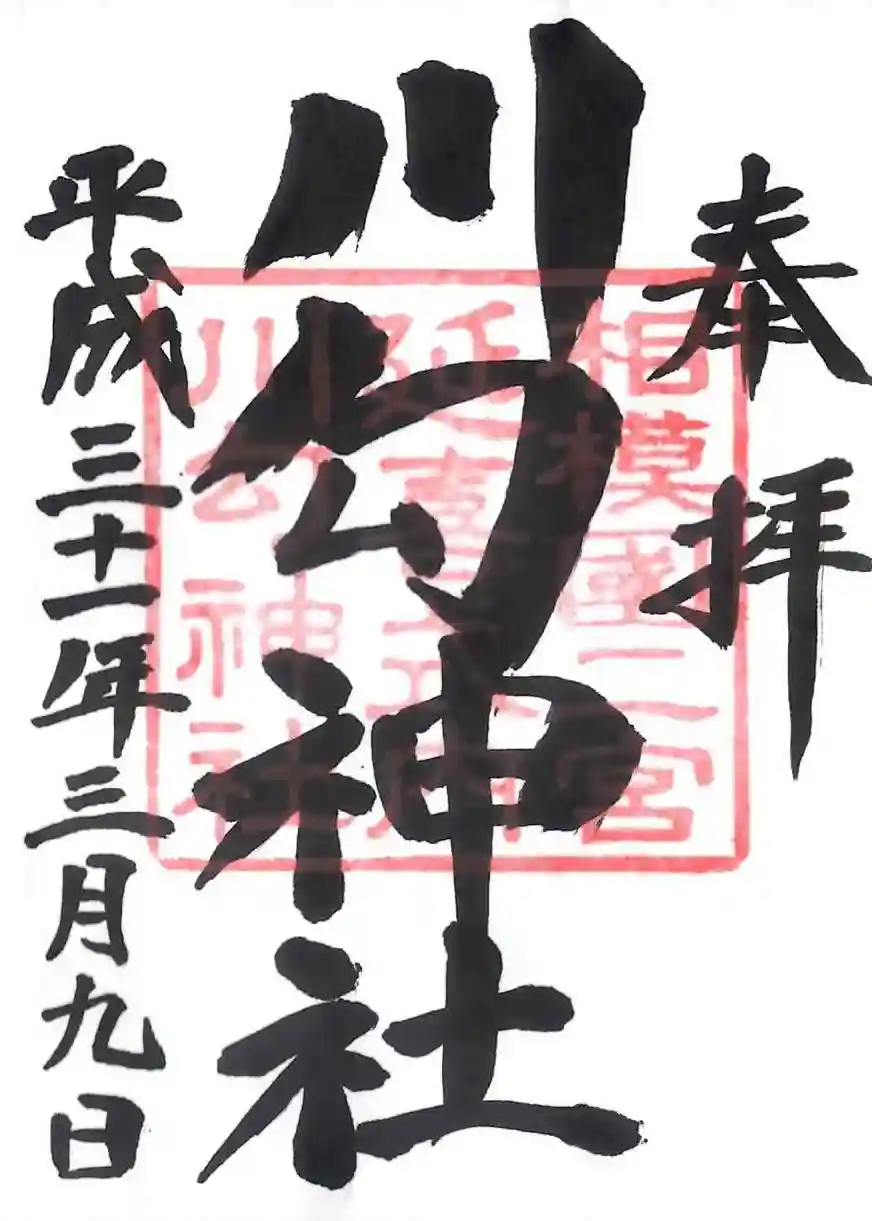 奉拝
川勾神社
相模國二宮
延喜式内
川勾神社
平成三十一年三月九日